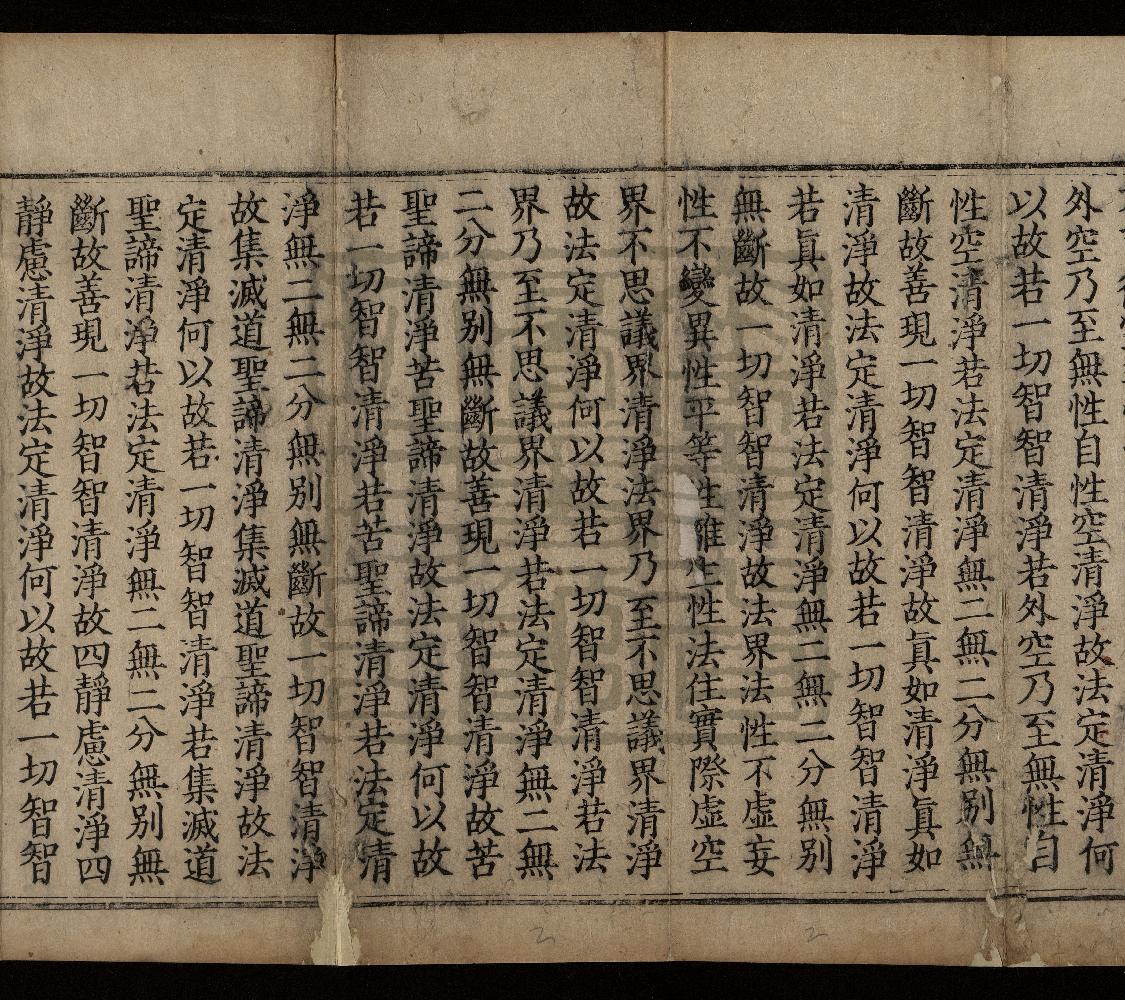 外空乃至無性自性空清淨故法定清淨何
以故若一切智智清淨若外空乃至無性自
性空清淨若法定清淨無二無二分無別無
斷故善現一切智智清淨故眞如清淨眞如
清淨故法定清淨何以故若一切智智清淨
若眞如清淨若法定清淨無二無二分無別
無斷故一切智智清淨故法界法性不虛妄
性不變異性平等性離生性法住實際虛空
界不思議界清淨法界乃至不思議界清淨
故法定清淨何以故若一切智智清淨若法
界乃至不思議界清淨若法定清淨無二無
二分無別無斷故善現一切智智清淨故苦
聖諦清淨苦聖諦清淨故法定清淨何以故
若一切智智清淨若苦聖諦清淨若法定清
淨無二無二分無別無斷故一切智智清淨
故集滅道聖諦清淨集滅道聖諦清淨故法
定清淨何以故若一切智智清淨若集滅道
聖諦清淨若法定清淨無二無二分無別無
斷故善現一切智智清淨故四靜慮清淨四
靜慮清淨故法定清淨何以故若一切智智